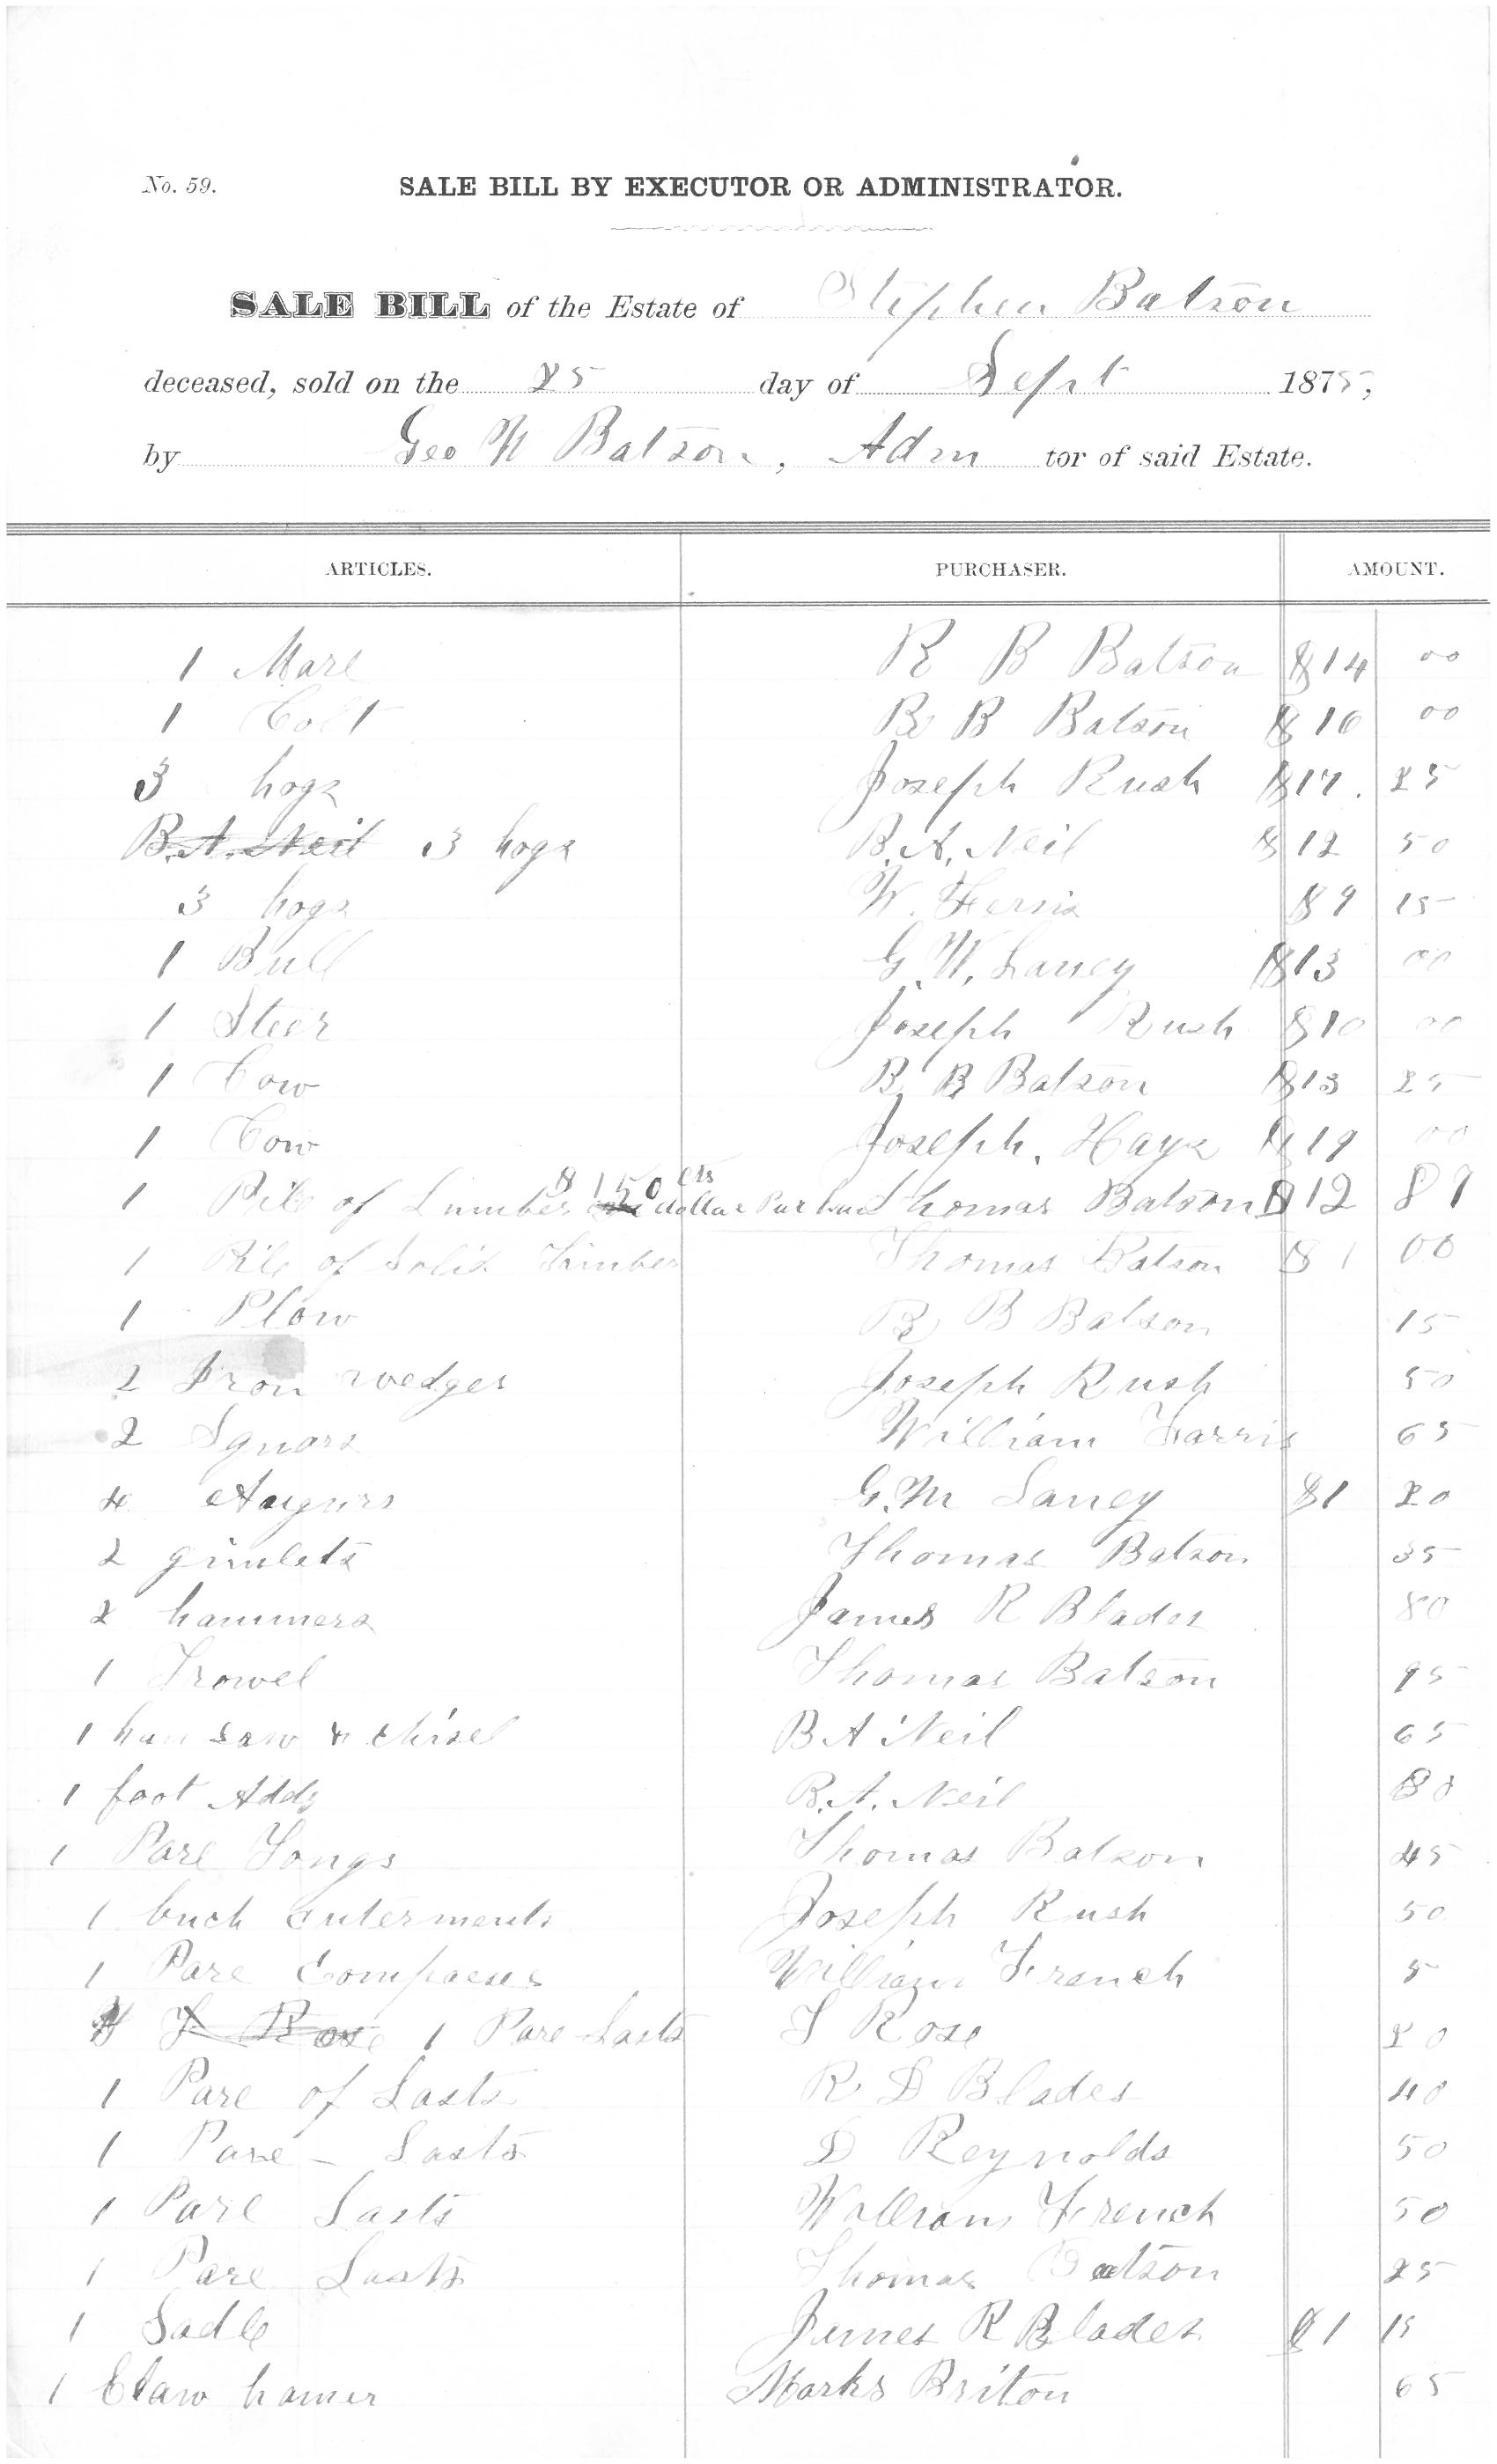 No. 59. SALE BILL BY EXECUTOR OR ADMINISTRATOR.
SALE BILL of the Estate of Stephen Batson
deceased, sold on the 25 day of Sept 1875,
by Geo W Batson, Adm tor of said Estate.
ARTICLES. PURCHASER. AMOUNT.
1 Mare R B Batson $14 00
1 Colt R B Batson $16 00
3 hogs Joseph Rush $17. 25
B. A. Neil 3 hogs B. A. Neil $12 50
3 hogs W. Ferris $9 15
1 Bull G. W. Laney $13 00
1 Steer Joseph Rush $10 00
1 Cow R B Batson $13 25
1 Cow Joseph. Hays $19 00
$1 50 cts
1 Pile of Lumber dollar Thomas Batson $12 89
1 Pile of Solid Timber Thomas Batson $1 00
1 Plow R B Batson 15
2 Iron wedges Joseph Rush 50
2 Squars William Farris 65
4 Augurs G. M Laney $1 20
2 gimlets Thomas Batson 35
2 hammers James R Blades 80
1 Trowel Thomas Batson 95
1 han saw & chisel B A Neil 65
1 foot Addz B. A. Neil 80
1 Pare Tongs Thomas Batson 45
1 buch Joseph Rush 50
1 Pare Compases William French 5
Rose 1 Pare Lasts T Rose 20
1 Pare of Lasts R D Blades 40
1 Pare - Lasts D Reynolds 50
1 Pare Lasts William French 50
1 Pare Lasts Thomas Batson 25
1 Sadle James R Blades $1 15
1 Claw hamer Marks Briton 65